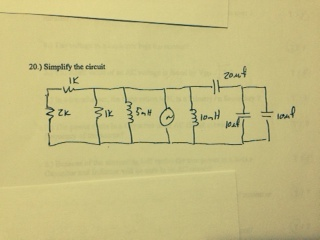 20.) Simplify the circuit
1K
20uf
2K
1K
5mH
10mH
10uf
10uf